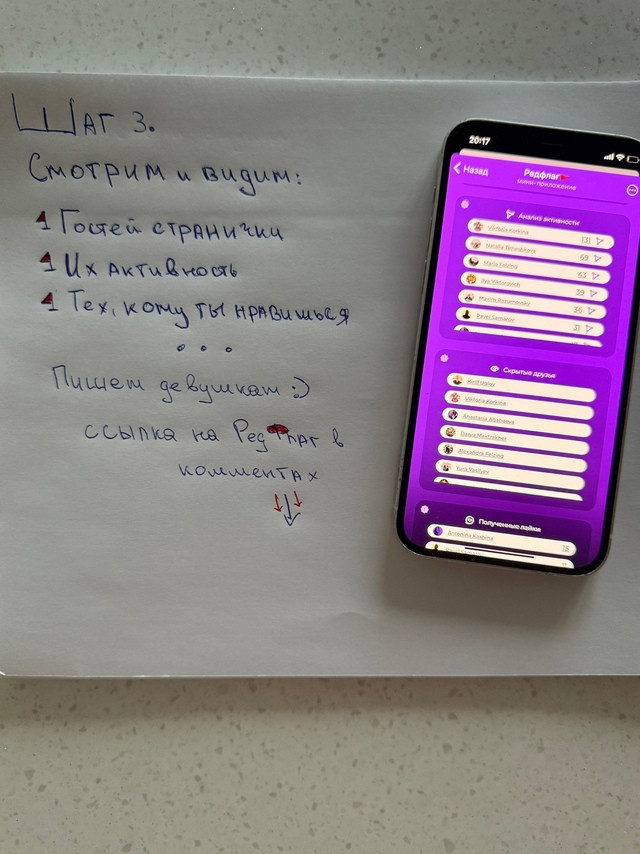 Шаг 3.
Смотрим и видим:
Гостей странички
Их активность
Тех, кому ты нравишься
...
Пишем девушкам :)
ссылка на РедФлаг в
комментах
20:17
Назад
Редфлаг
мини-приложение
Анализ активности
Viktoria Korkina 131
Natalia Timeshkova 69
Maria Felzing 43
Ilya Viktorovich 39
Maxim Razuminsky 36
Pavel Semenov 31
Скрытые друзья
Kirill Uralov
Viktoria Korkina
Anastasia
Darya
Alexandra Felzing
Yura Vasilyev
Полученные лайки
Antonina Kashina 15